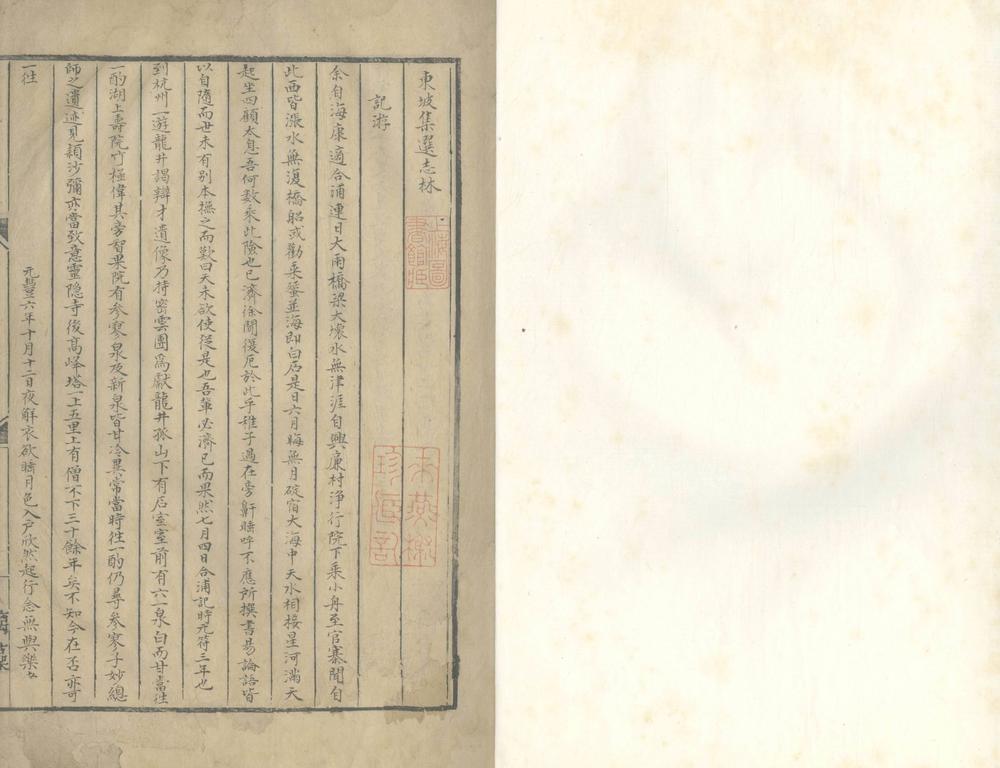 東坡集選志林
上海圖書館藏
記游
余自海康適合浦連日大雨橋梁大壞水無津涯自興廉村淨行院下乘小舟至官寨聞自
此西皆漲水無復橋船或勸乘蜑並海即白石是日六月晦無月碇宿大海中天水相接星河滿天
起坐四顧太息吾何數乘此險也已濟徐聞復厄於此乎稚子過在旁鼾睡呼不應所撰書易論語皆
以自隨而世未有別本撫之而歎曰天未欲使從是也吾輩必濟已而果然七月四日合浦記時元符三年也
到杭州一遊龍井謁辯才遺像乃持密雲團為獻龍井孤山下有石室室前有六一泉白而甘當往
一酌湖上壽院竹極偉其旁智果院有參寥泉及新泉皆甘冷異常當時往一酌仍尋參寥子妙總
師之遺迹見穎沙彌亦當致意靈隱寺後高峰塔一上五里上有僧不下三十餘年矣不知今在否亦可
一往
元豐六年十月十二日夜解衣欲睡月色入戶欣然起行念無與樂